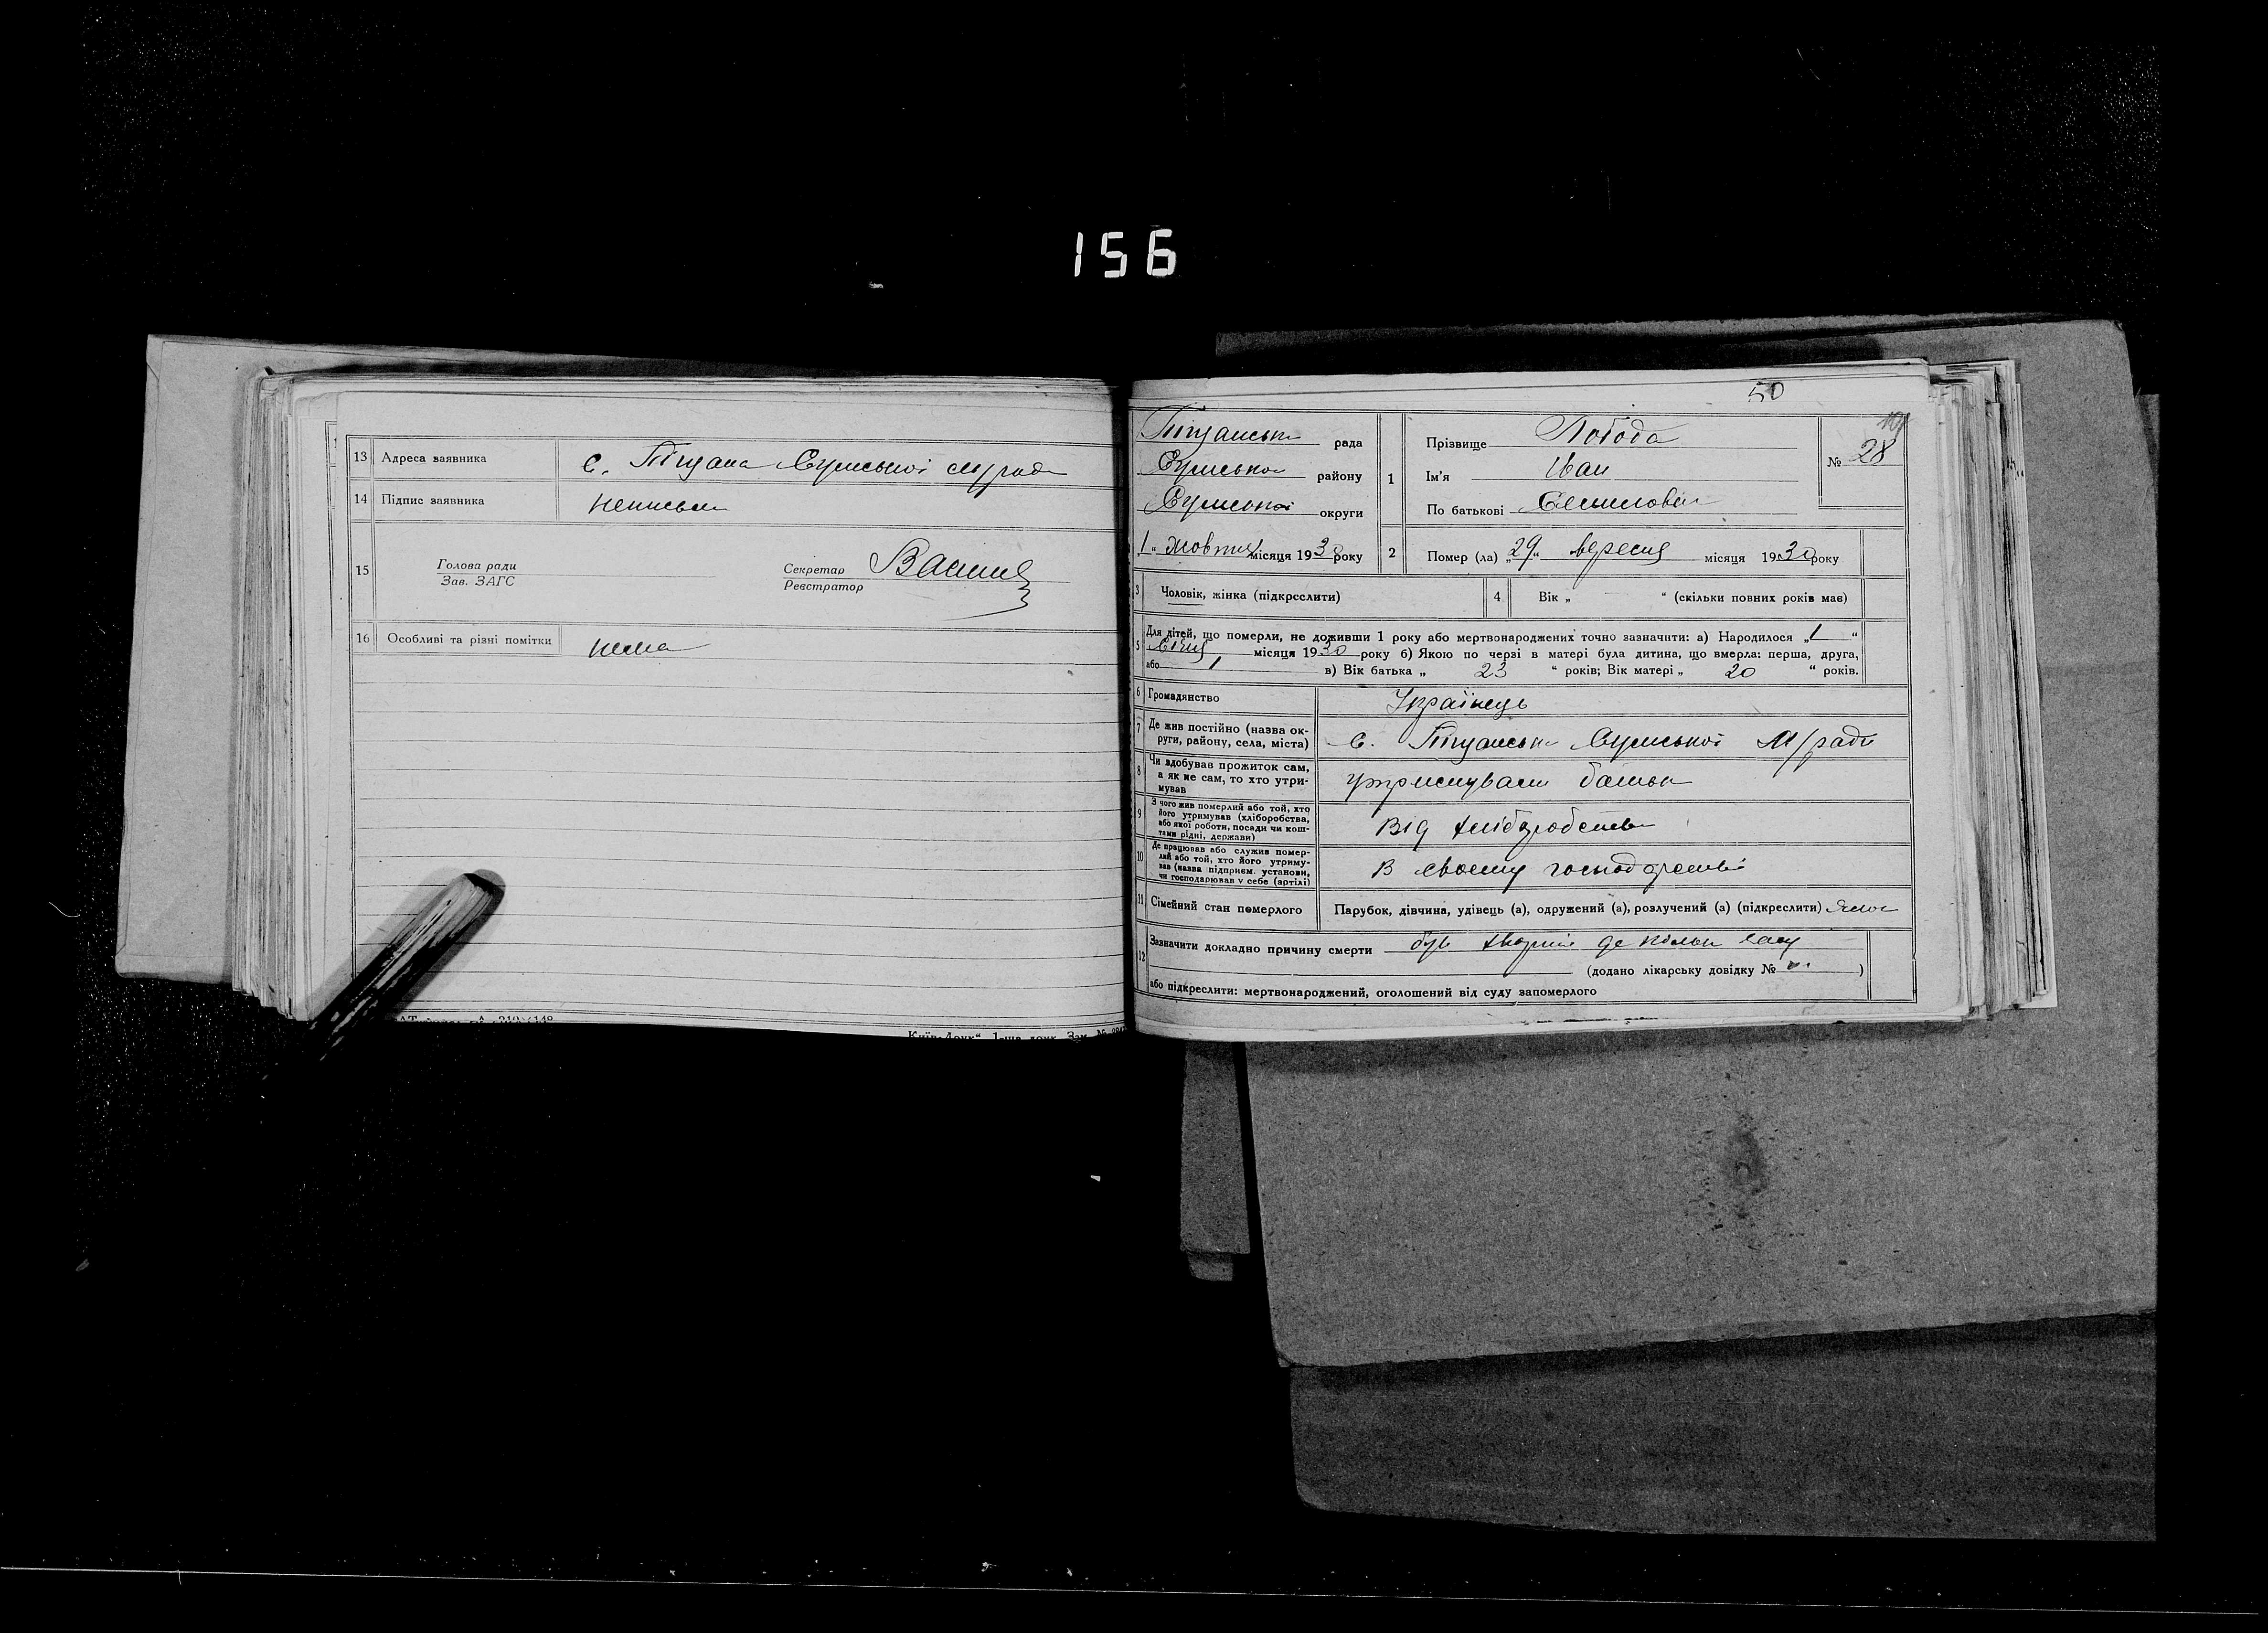 156
13 Адреса заявника с. Піщана Сумської
14 Підпис заявника неписьм
15 Голова ради
Зав. ЗАГС
Секретар
Реєстратор
16 Особливі та різні помітки нема
50
рада
Сумсько району
Сумської округи
„1“ Жовтня місяця 1930 року
1 Прізвище Лобода
Ім'я Іван
По батькові
№ 28
2 Помер (ла) „29“ вересня місяця 1930 року
3 Чоловік, жінка (підкреслити)
4 Вік „ — “ (скільки повних років має)
5 Для дітей, що померли, не доживши 1 року або мертвонароджених точно зазначити: а) Народилося „1“
Січня місяця 1930 року б) Якою по черзі в матері була дитина, що вмерла: перша, друга,
або 1 в) Вік батька „ 23 “ років; Вік матері „ 20 “ років.
6 Громадянство Українець
7 Де жив постійно (назва ок-
руги, району, села, міста) с. Сумської м/ради
8 Чи здобував прожиток сам,
а як не сам, то хто утри-
мував утримували батьки
9 З чого жив померлий або той, хто
його утримував (хліборобства,
або якої роботи, посади чи кош-
тами рідні, держави) Від хліборобства
10 Де працював або служив помер-
лий або той, хто його утриму-
вав (назва підприєм. установи,
чи господарював у себе (артілі) В своєму господарстві
11 Сімейний стан померлого Парубок, дівчина, удівець (а), одружений (а), розлучений (а) (підкреслити)
12 Зазначити докладно причину смерти був хворий де кільки часу
(додано лікарську довідку № )
або підкреслити: мертвонароджений, оголошений від суду запомерлого